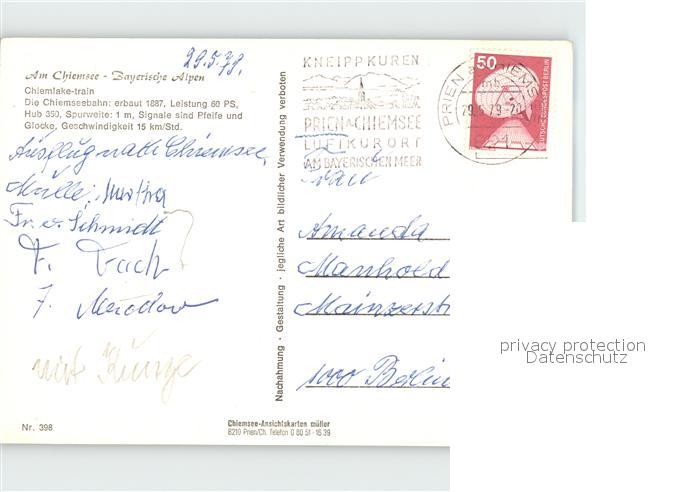 29.5.79.
Am Chiemsee - Bayerische Alpen
Chiemlake-train
Die Chiemseebahn: erbaut 1887, Leistung 60 PS,
Hub 350, Spurweite: 1 m, Signale sind Pfeife und
Glocke, Geschwindigkeit 15 km/Std.
Ausflug nach Chiemsee,
Müller, Martha
Fr. v. Schmidt
F.
F.
mit
Nr. 398
Nachahmung · Gestaltung · jegliche Art bildlicher Verwendung verboten
KNEIPPKUREN
PRIEN A. CHIEMSEE
LUFTKURORT
AM BAYERISCHEN MEER
PRIEN a CHIEMS
29.5.79-2
8210
50
DEUTSCHE BUNDESPOST BERLIN
Frau
Amanda
Manhold
Mainzerstr
1000 Berlin
privacy protection
Datenschutz
Chiemsee-Ansichtskarten müller
8210 Prien/Ch. Telefon 0 80 51 - 16 39